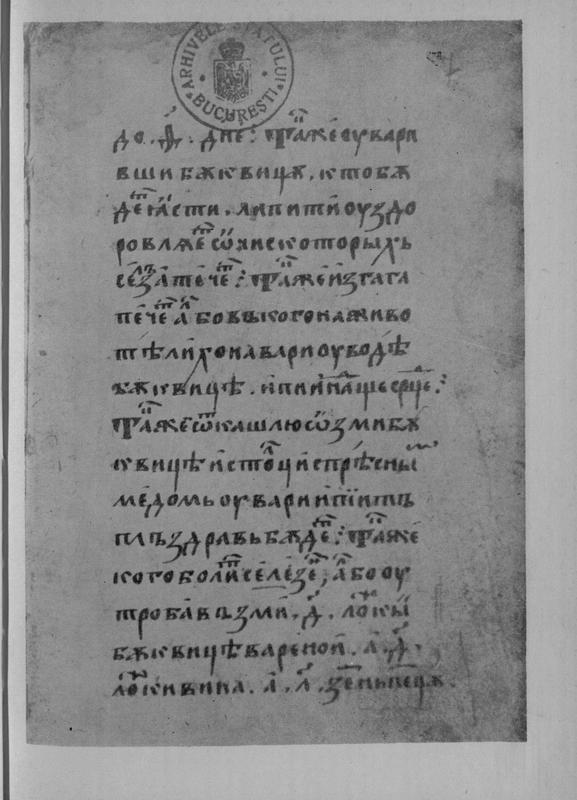 ARHIVELE STATULUI
BUCUREȘTI
до · д҃ · дн҃е : Таⷤже ѹвари
вши бѫквицѫ · кто бѫ
деⷮ ꙗсти · ли пити оуздо
ровлѧеⷮ ѿ ꙗ искоторыхъ
сеⷧзатечеⷮ : Таⷤже изгага
печеⷮ абовъ кого на живо
тѣ лихо навари оу водѣ
бѫквицѣ · и пии на тще срⷣце :
Таⷤже ѿ кашлю ѿзми бѫ
квицѣ истоⷧци спрѣсныⷨ
медомь оувари и пиить
пль здравь бѫдеⷮ : Таⷤже
кого болиⷮ селезеⷩ, або оу
троба възми · д҃ · лоⷤкы
бѫквицѣ вареной · а · д҃ ·
лоⷤки вина · а · л҃ · зеⷬнь перцѫ ·